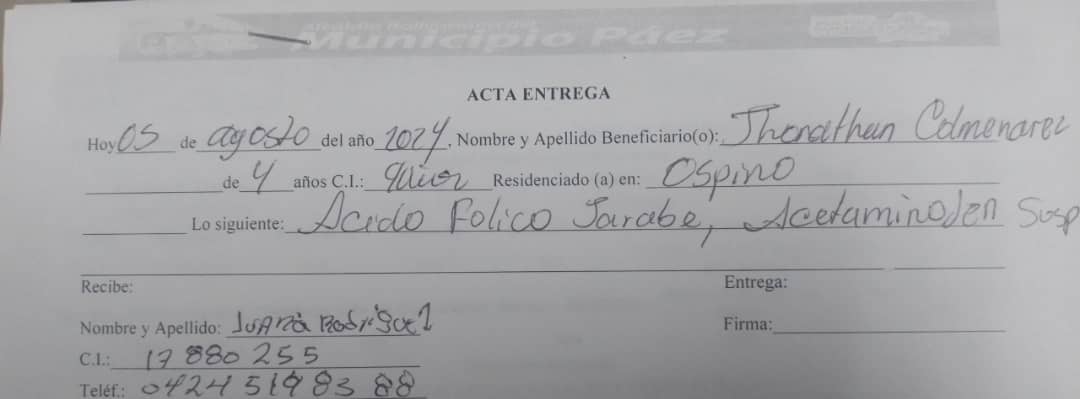 Alcaldía Bolivariana del
Municipio Páez
ACTA ENTREGA
Hoy 05 de agosto del año 2024, Nombre y Apellido Beneficiario(o): Jhonathan Colmenarez
de 4 años C.I.: Residenciado (a) en: Ospino
Lo siguiente: Acido Folico Jarabe, Acetaminofen Susp
Recibe: Entrega:
Nombre y Apellido: Juana Rodriguez Firma:
C.I.: 17 880 255
Teléf.: 0424 519 83 88